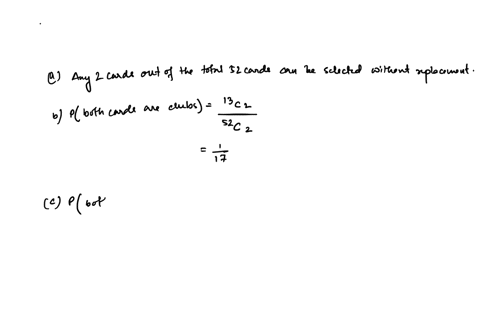 (a) Any 2 cards out of the total 52 cards can be selected without replacement.
b) P(both cards are clubs) = 13C2 / 52C2
= 1/17
(c) P(bot